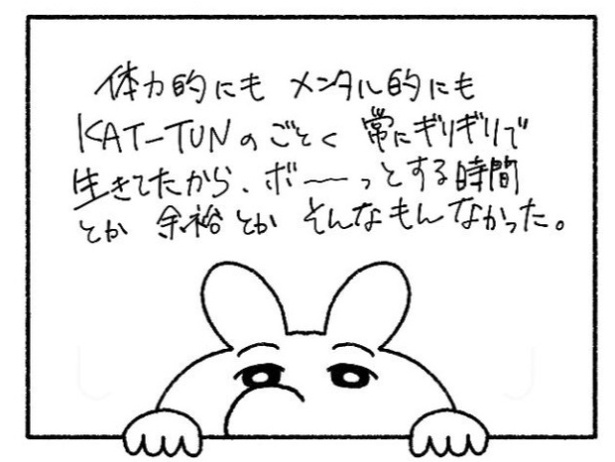 体力的にも メンタル的にも
KAT-TUNのごとく 常にギリギリで
生きてたから、ボ〜〜っとする時間
とか 余裕とか そんなもんなかった。